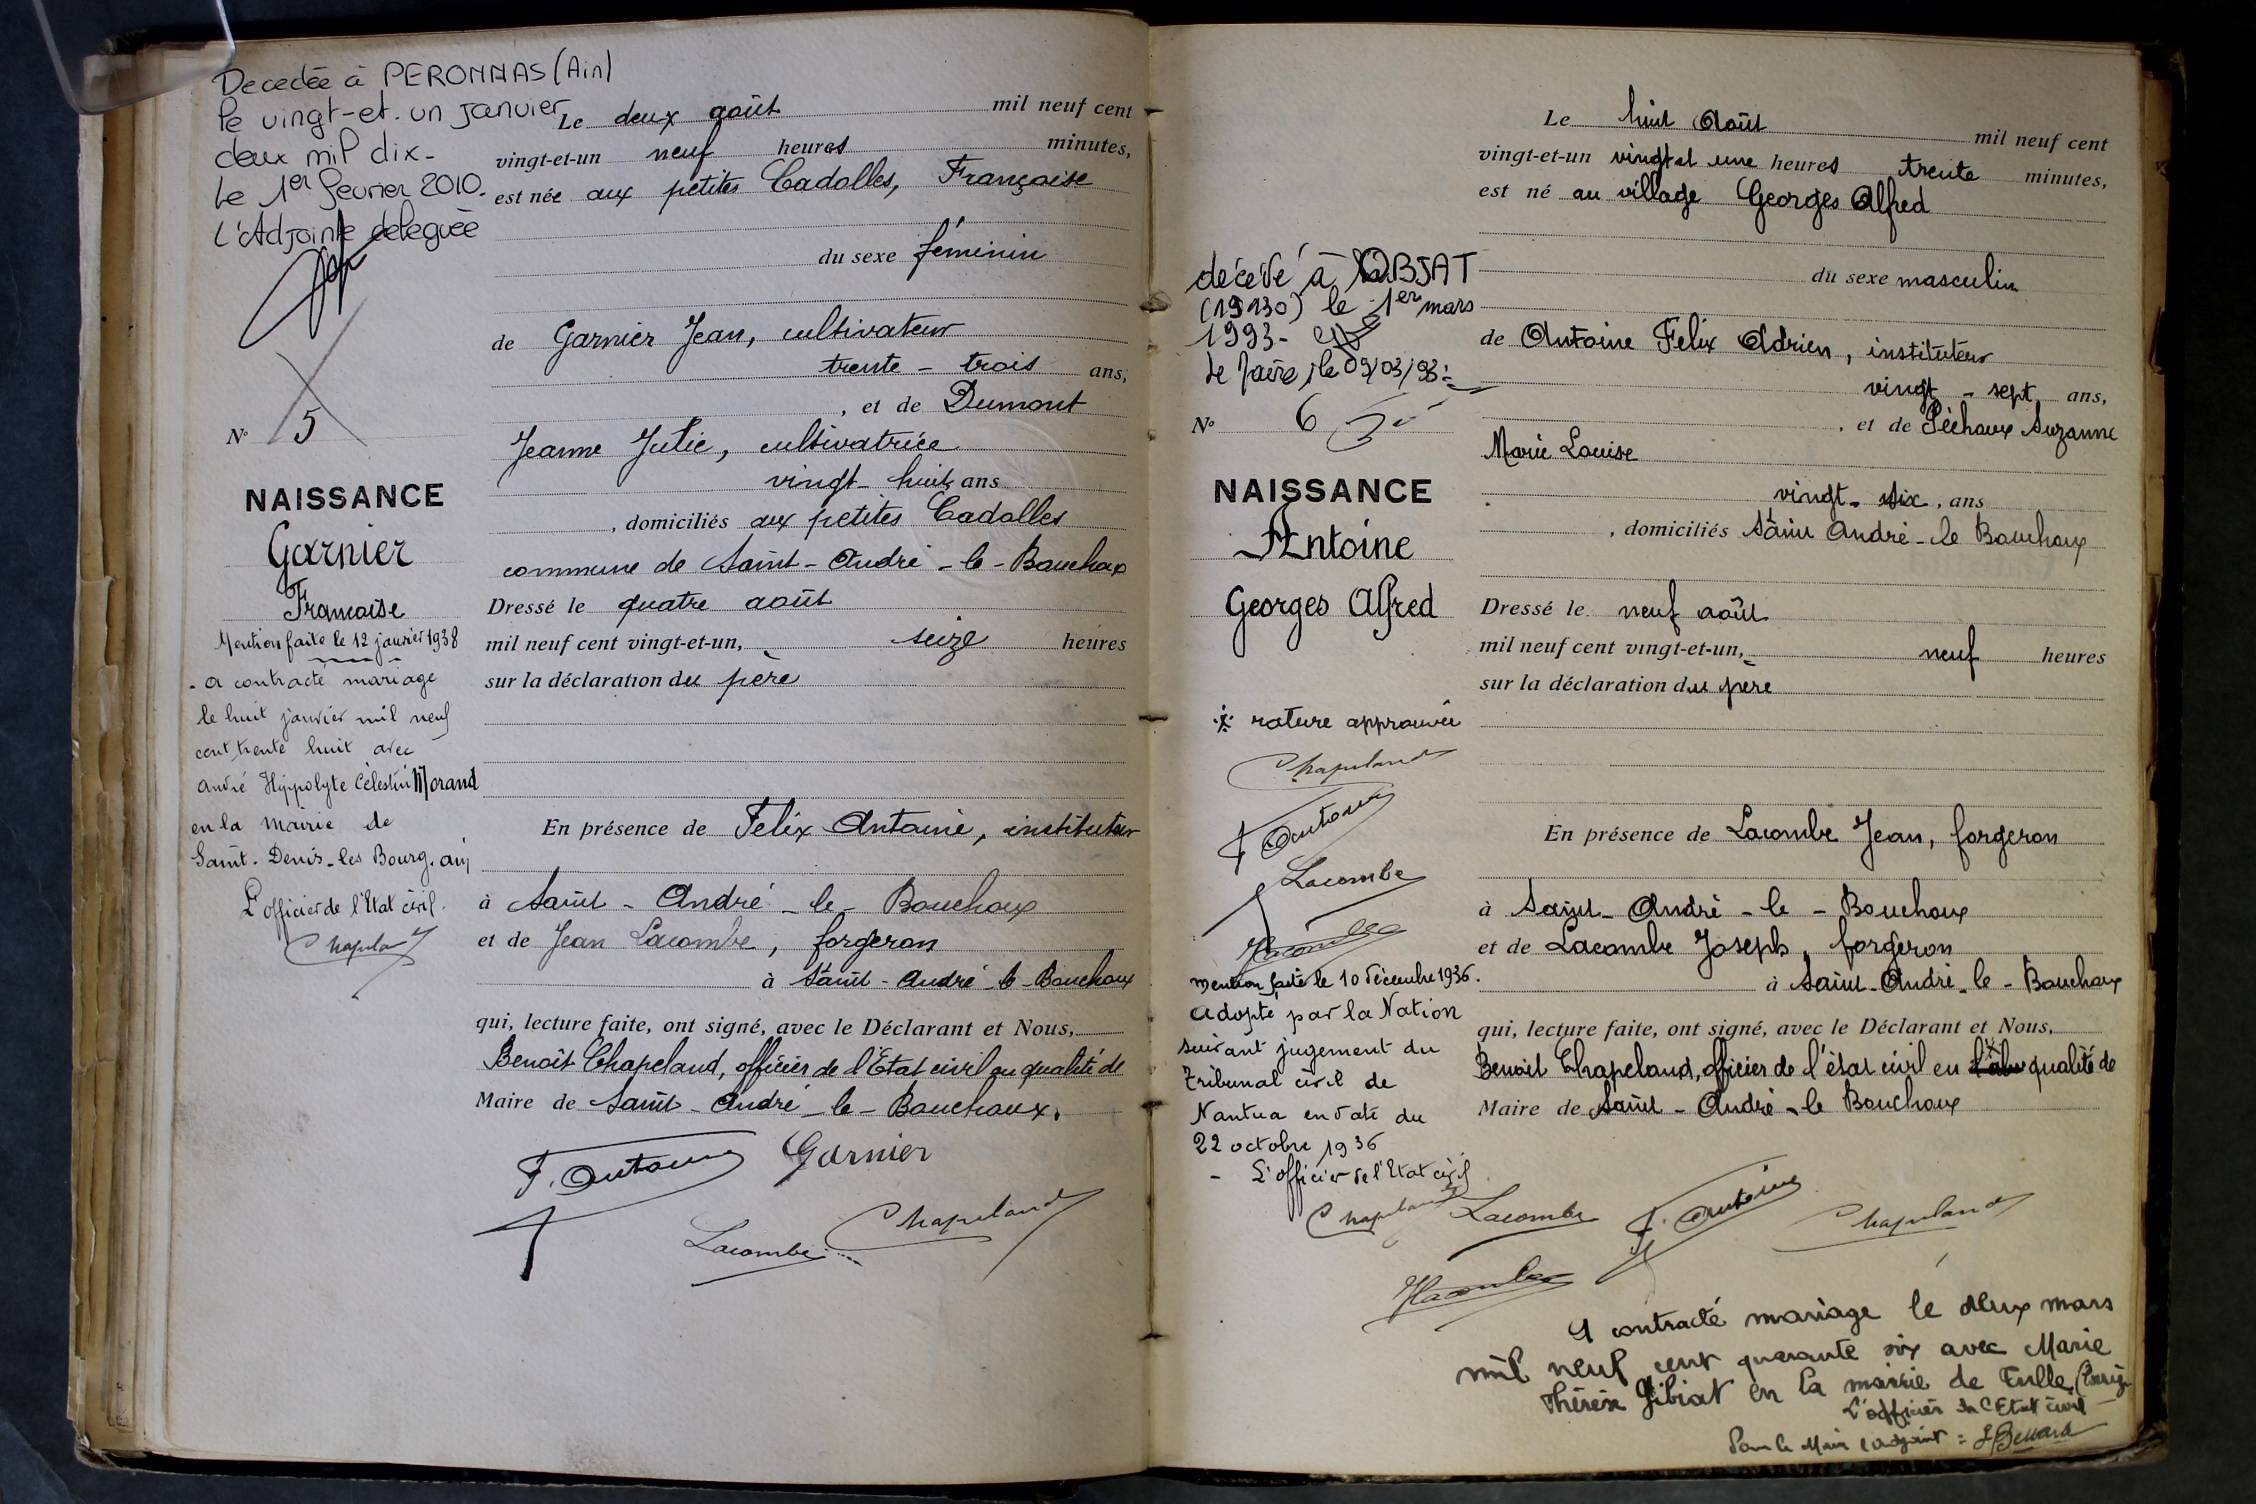 Decedée à PERONNAS (Ain)
le vingt-et-un janvier
deux mil dix-
Le 1er février 2010.
L'Adjointe déléguée
N° 5
NAISSANCE
Garnier
Francoise
Mention faite le 12 janvier 1938
- a contracté mariage
le huit janvier mil neuf
cent trente huit avec
André Hippolyte Célestin Morand
en la mairie de
Saint-Denis-les Bourg. ain
L'officier de l'Etat civil.
Chapeland
Le deux août mil neuf cent
vingt-et-un neuf heures minutes,
est née aux petites Cadolles, Françoise
du sexe féminin
de Garnier Jean, cultivateur
trente-trois ans,
, et de Dumont
Jeanne Julie, cultivatrice
vingt-huit ans
, domiciliés aux petites Cadolles
commune de Saint-André-le-Bouchoux
Dressé le quatre août
mil neuf cent vingt-et-un, seize heures
sur la déclaration du père
En présence de Felix Antoine, instituteur
à Saint-André-le-Bouchoux
et de Jean Lacombe, forgeron
à Saint-André-le-Bouchoux
qui, lecture faite, ont signé, avec le Déclarant et Nous,
Benoit Chapeland, officier de l'Etat civil en qualité de
Maire de Saint-André-le-Bouchoux.
F. Antoine Garnier
Lacombe Chapeland
décédé à OBJAT
(19130) le 1er mars
1993-
Le Maire, le 09/03/93.
N° 6
NAISSANCE
Antoine
Georges Alfred
※ rature approuvée
Chapeland
F Antoine
Lacombe
JLacombe
mention faite le 10 décembre 1936.
adopté par la Nation
suivant jugement du
tribunal civil de
Nantua en date du
22 octobre 1936
- L'officier de l'Etat civil
Chapeland
Le huit Août mil neuf cent
vingt-et-un vingt et une heures trente minutes,
est né au village Georges Alfred
du sexe masculin
de Antoine Felix Adrien, instituteur
vingt-sept ans,
, et de Péchoux Suzanne
Marie Louise
vingt-six, ans
, domiciliés Saint André-le Bouchoux
Dressé le neuf août
mil neuf cent vingt-et-un, neuf heures
sur la déclaration du père
En présence de Lacombe Jean, forgeron
à Saint-André-le-Bouchoux
et de Lacombe Joseph, forgeron
à Saint-André-le-Bouchoux
qui, lecture faite, ont signé, avec le Déclarant et Nous,
Benoit Chapeland, officier de l'état civil en qualité de
Maire de Saint-André-le Bouchoux
Lacombe F. Antoine Chapeland
JLacombe
A contracté mariage le deux mars
mil neuf cent quarante six avec Marie
Thérèse Gibiat en la mairie de Tulle (Corrèze
L'officier de l'Etat civil
Pour le Maire l'adjoint :